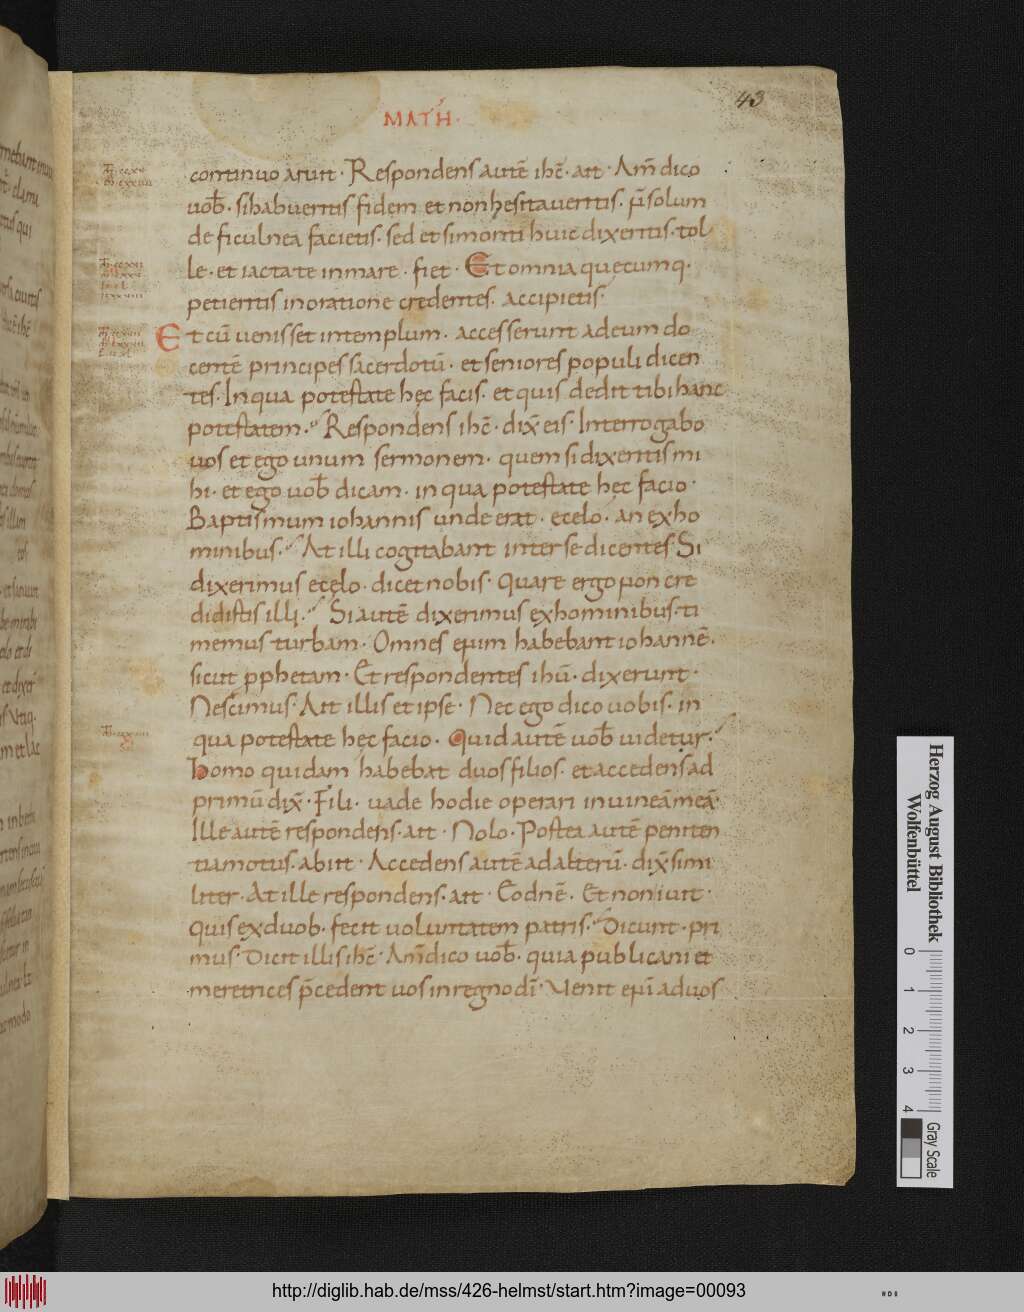 43
MATH·
continuo aruit· Respondens autē ihc̄· ait· Am̄ dico
uob̄· si habueritis fidem et non hesitaueritis· n̄ solum
de ficulnea facietis· sed et si monti huic dixeritis· tol
le· et iacta te in mare· fiet· Et omnia quęcumq·
petieritis in oratione credentes· accipietis·
Et cū uenisset in templum· accesserunt ad eum do
centē principes sacerdotū· et seniores populi dicen
tes· In qua potestate hęc facis· et quis dedit tibi hanc
potestatem· Respondens ihc̄· dix̄ eis· Interrogabo
uos et ego unum sermonem· quem si dixeritis mi
hi· et ego uob̄ dicam· in qua potestate hęc facio·
Baptismum iohannis unde erat· e celo· an ex ho
minibus· At illi cogitabant inter se dicentes· Si
dixerimus e celo· dicet nobis· Quare ergo non cre
didistis illi· Si autē dixerimus ex hominibus· ti
memus turbam· Omnes enim habebant iohannē·
sicut pphetam· Et respondentes ihū· dixerunt·
Nescimus· Ait illis et ipse· Nec ego dico uobis· in
qua potestate hęc facio· Quid autē uob̄ uidetur·
Homo quidam habebat duos filios· et accedens ad
primū dix̄· Fili· uade hodie operari in uineā meā·
Ille autē respondens· ait· Nolo· Postea autē peniten
tia motus· abiit· Accedens autē ad alterū· dix̄ simi
liter· At ille respondens· ait· Eo dnē· Et non iuit·
quis ex duob· fecit uoluntatem patris· Dicunt· pri
mus· Dicit illis ihc̄· Am̄ dico uob̄· quia publicani et
meretrices p̄cedent uos in regno dī· Uenit enī ad uos
Herzog August Bibliothek
Wolfenbüttel
0 1 2 3 4
Gray Scale
http://diglib.hab.de/mss/426-helmst/start.htm?image=00093